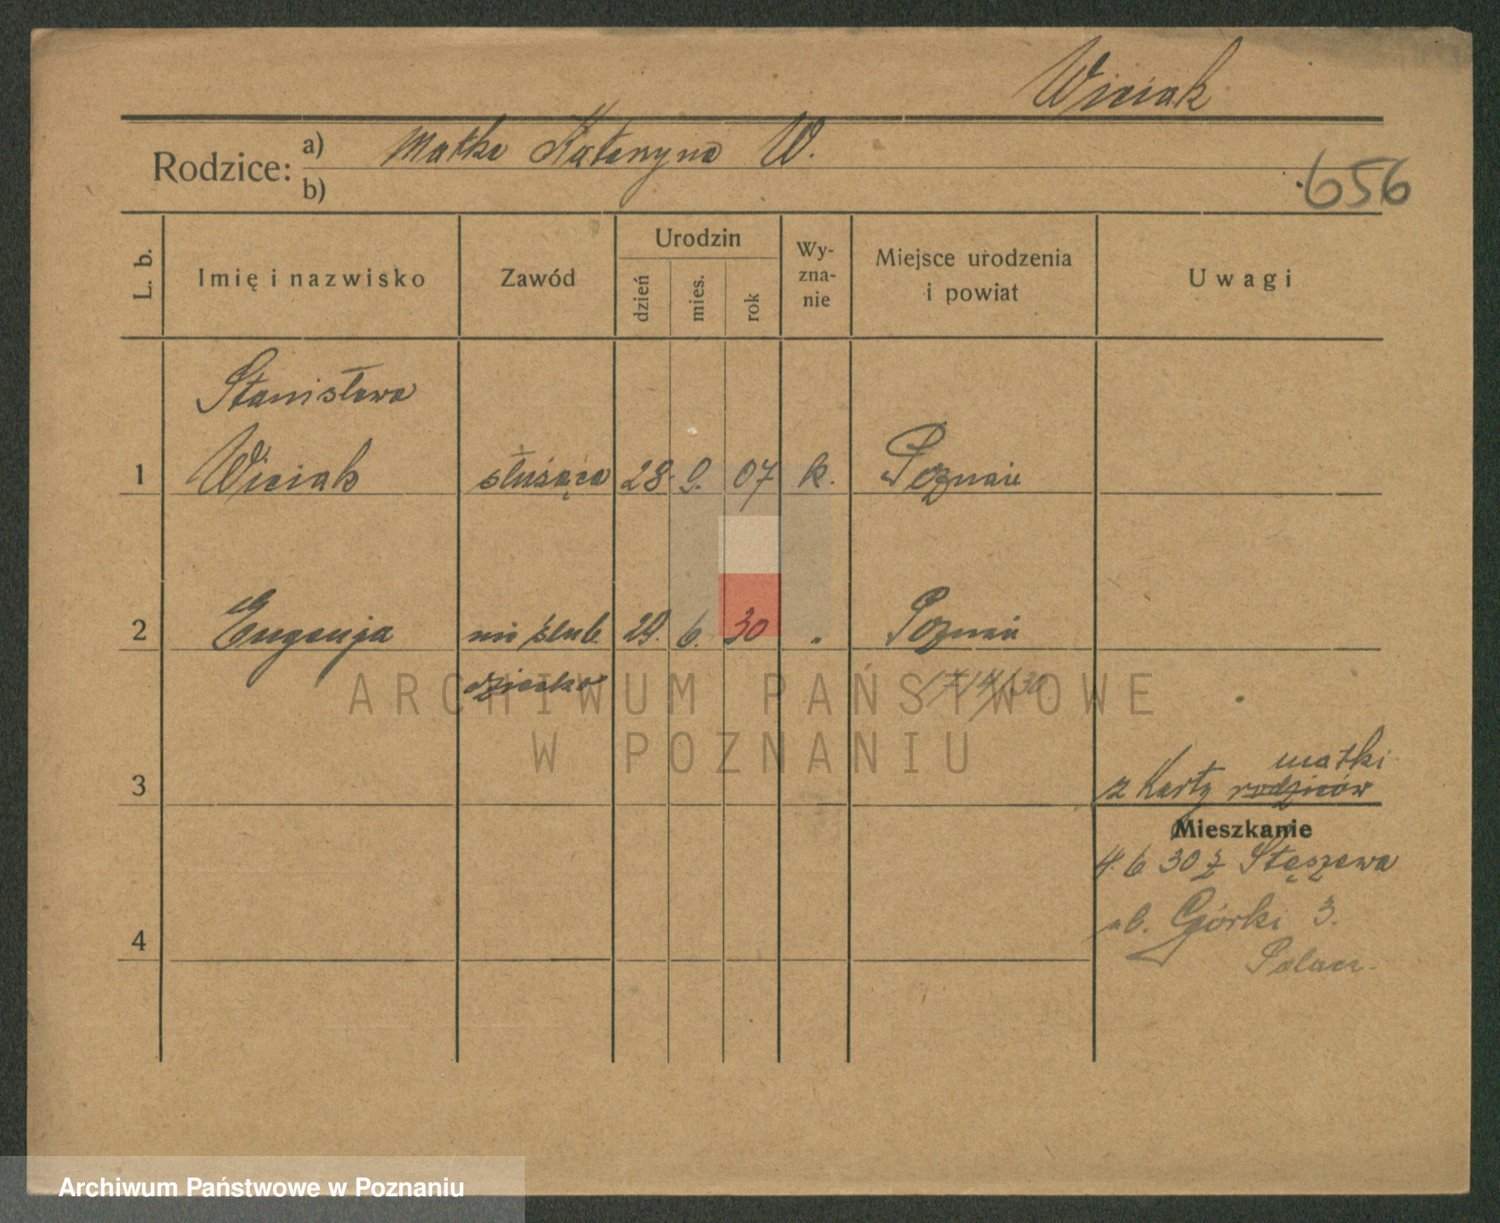 Wiciak
Rodzice: a) Matka Katarzyna W.
b)
656
L. b. Imię i nazwisko Zawód Urodzin dzień mies. rok Wyznanie Miejsce urodzenia i powiat Uwagi
Stanisława
1 Wiciak służąca 28. 9. 07 k. Poznań
2 Eugenja nie ślub. 29. 6. 30 " Poznań
dziecko 1714/30
ARCHIWUM PAŃSTWOWE
W POZNANIU
matki
3 z Karty rodziców
Mieszkanie
4. 6 30 z Stęszewa
4 Górki 3.
Archiwum Państwowe w Poznaniu